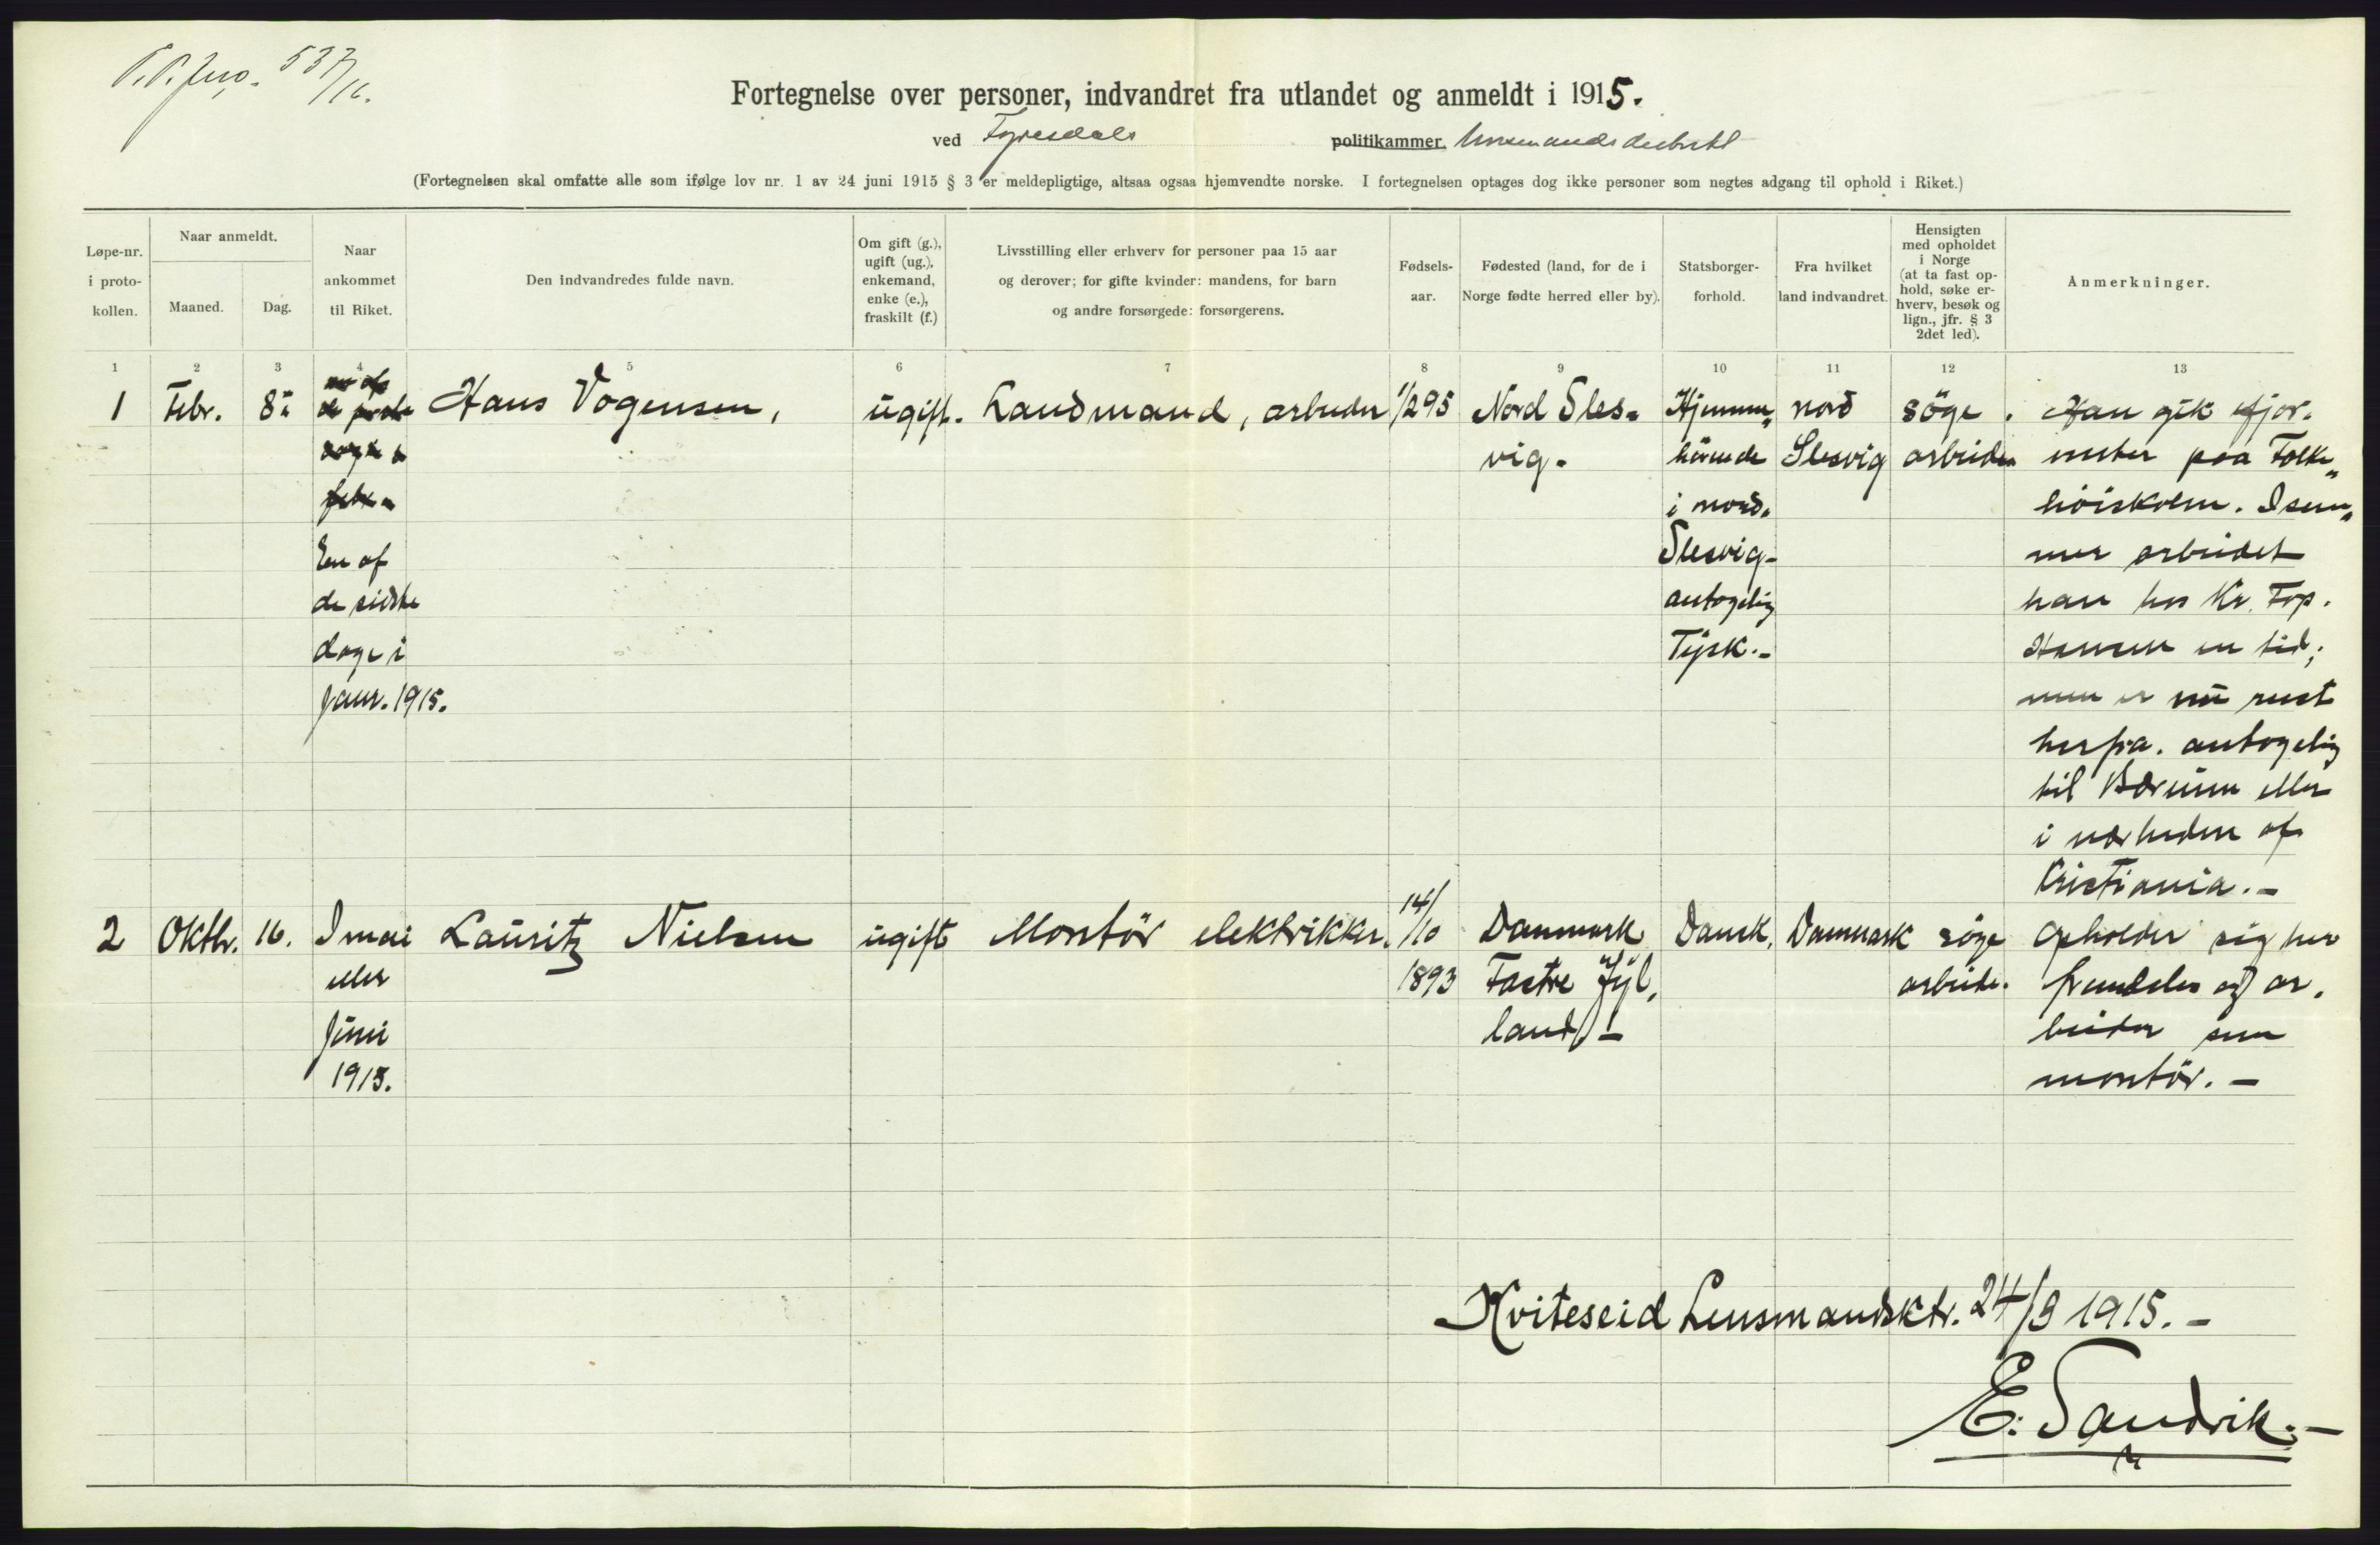 537/16.
Fortegnelse over personer, indvandret fra utlandet og anmeldt i 1915.
ved Fyresdals politikammer
(Fortegnelsen skal omfatte alle som ifølge lov nr. 1 av 24 juni 1915 § 3 er meldepligtige, altsaa ogsaa hjemvendte norske. I fortegnelsen optages dog ikke personer som negtes adgang til ophold i Riket.)
Løpe-nr. i proto-kollen.
Naar anmeldt.
Maaned.
Dag.
Naar ankommet til Riket.
Den indvandredes fulde navn.
Om gift (g.), ugift (ug.), enkemand, enke (e.), fraskilt (f.)
Livsstilling eller erhverv for personer paa 15 aar og derover; for gifte kvinder: mandens, for barn og andre forsørgede: forsørgerens.
Fødsels-aar.
Fødested (land, for de i Norge fødte herred eller by).
Statsborger-forhold.
Fra hvilket land indvandret.
Hensigten med opholdet i Norge (at ta fast op-hold, søke er-hverv, besøk og lign., jfr. § 3 2det led).
Anmerkninger.
1 2 3 4 5 6 7 8 9 10 11 12 13
1 Febr. 8 Hans Vogensen, ugift. Landmand, arbeider 1/2 95 Nord Sles- Hjemme" nord söge Han gik ifjor.
vig. hörende Slesvig arbeide vinter paa Folke"
i nord. höiskolen. I som"
En af Slesvig- mer arbeidet
de sidste antagelig han hos Kr. Fop.
dage i Tysk.- Hansen en tid;
Janr. 1915. men er nu reist
herfra. antagelig
til Bærum eller
i nærheden af
Kristiania.-
2 Oktbr. 16. I mai Lauritz Nielsen ugift Montör elektrikker. 14/10 Danmark Dansk. Danmark söge Opholder sig her
eller 1893 Fastre Jyl. arbeide. fremdeles og ar.
Juni land.- beider som
1915. montör.-
Kviteseid Lensmandsktr. 24/9 1915.-
E. Sandvik.-